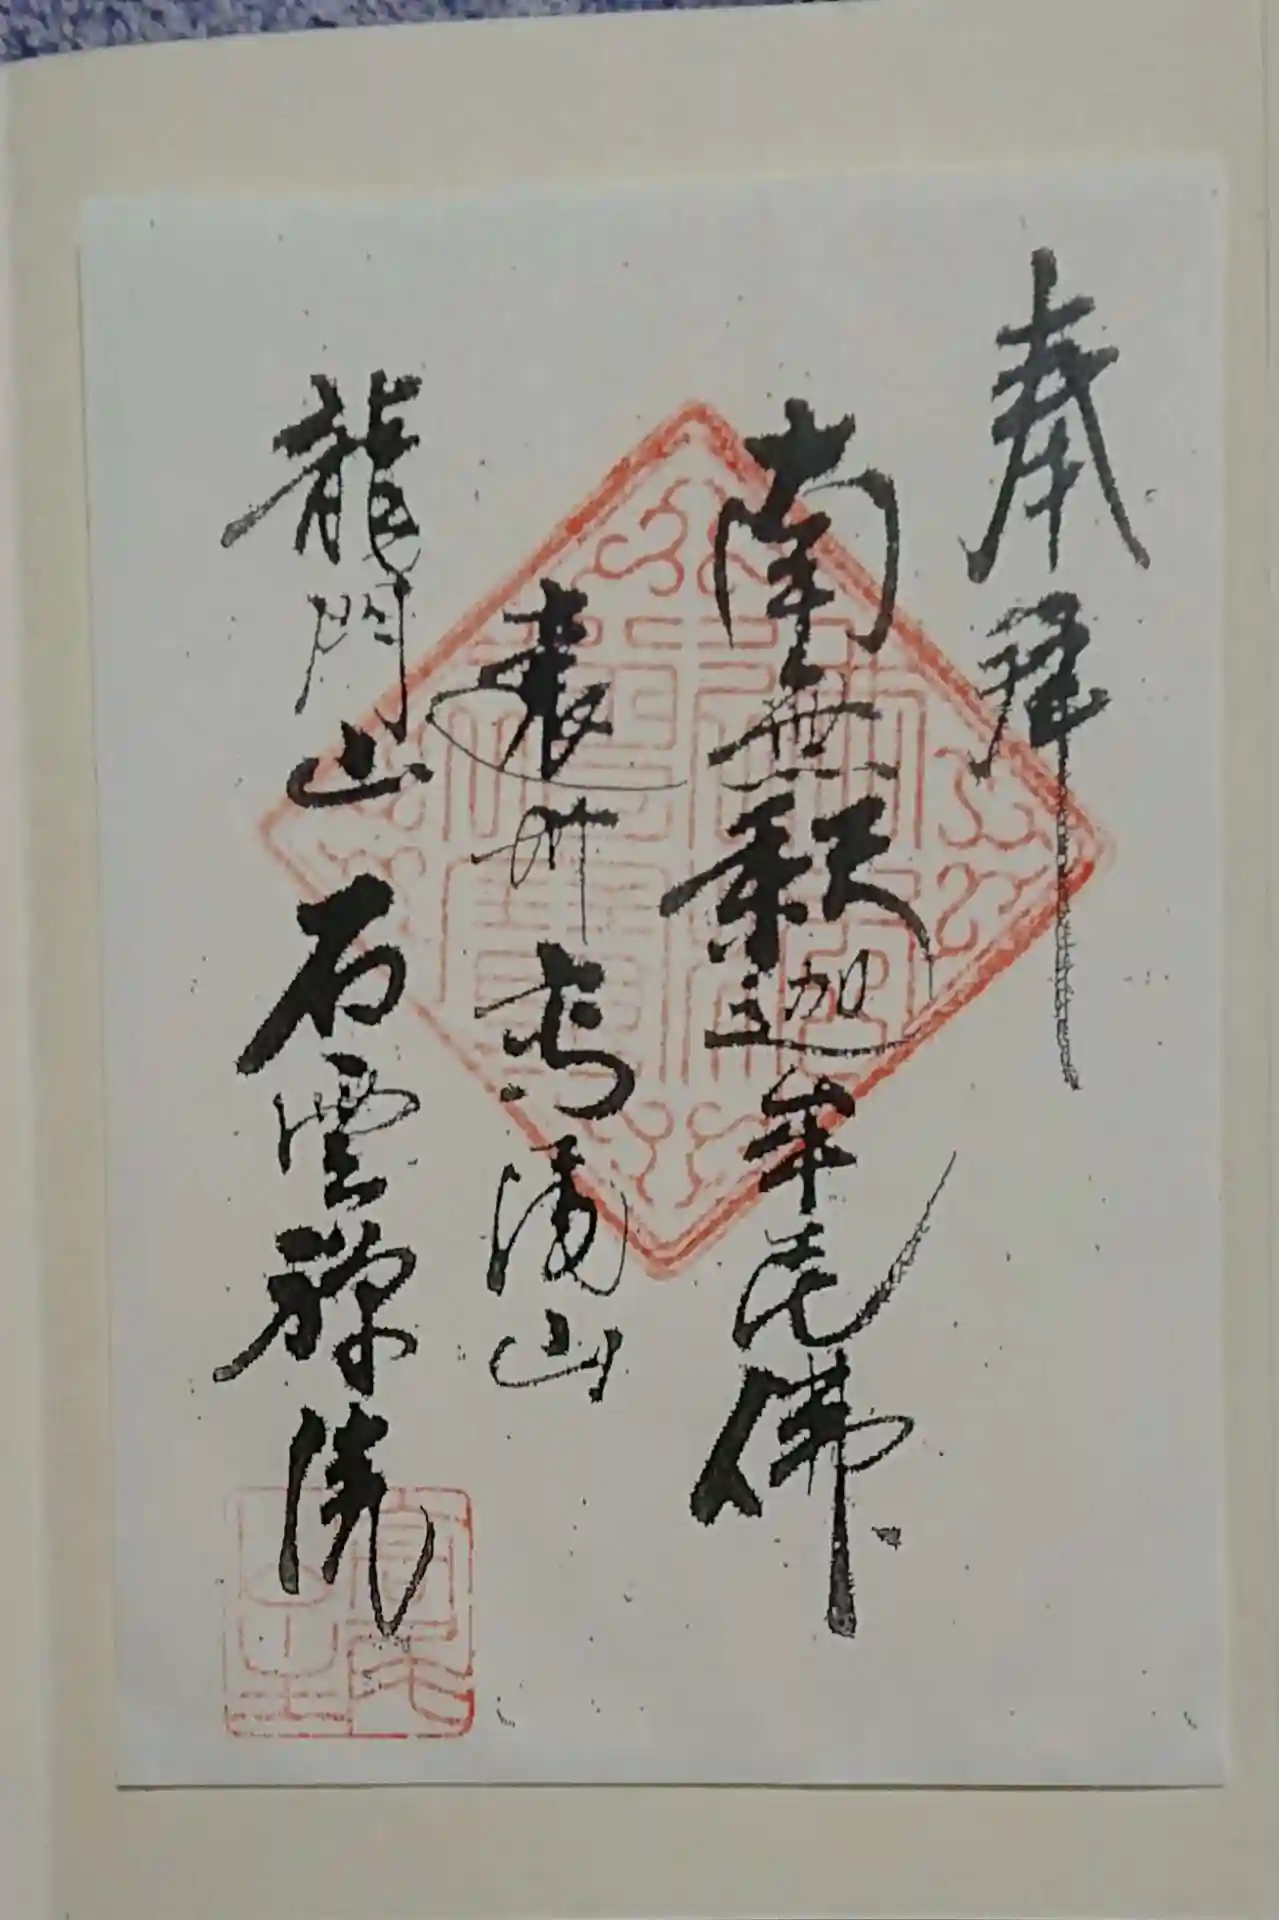 奉拝
南無釈迦牟尼佛
遠州高山
龍門山石雲禅院